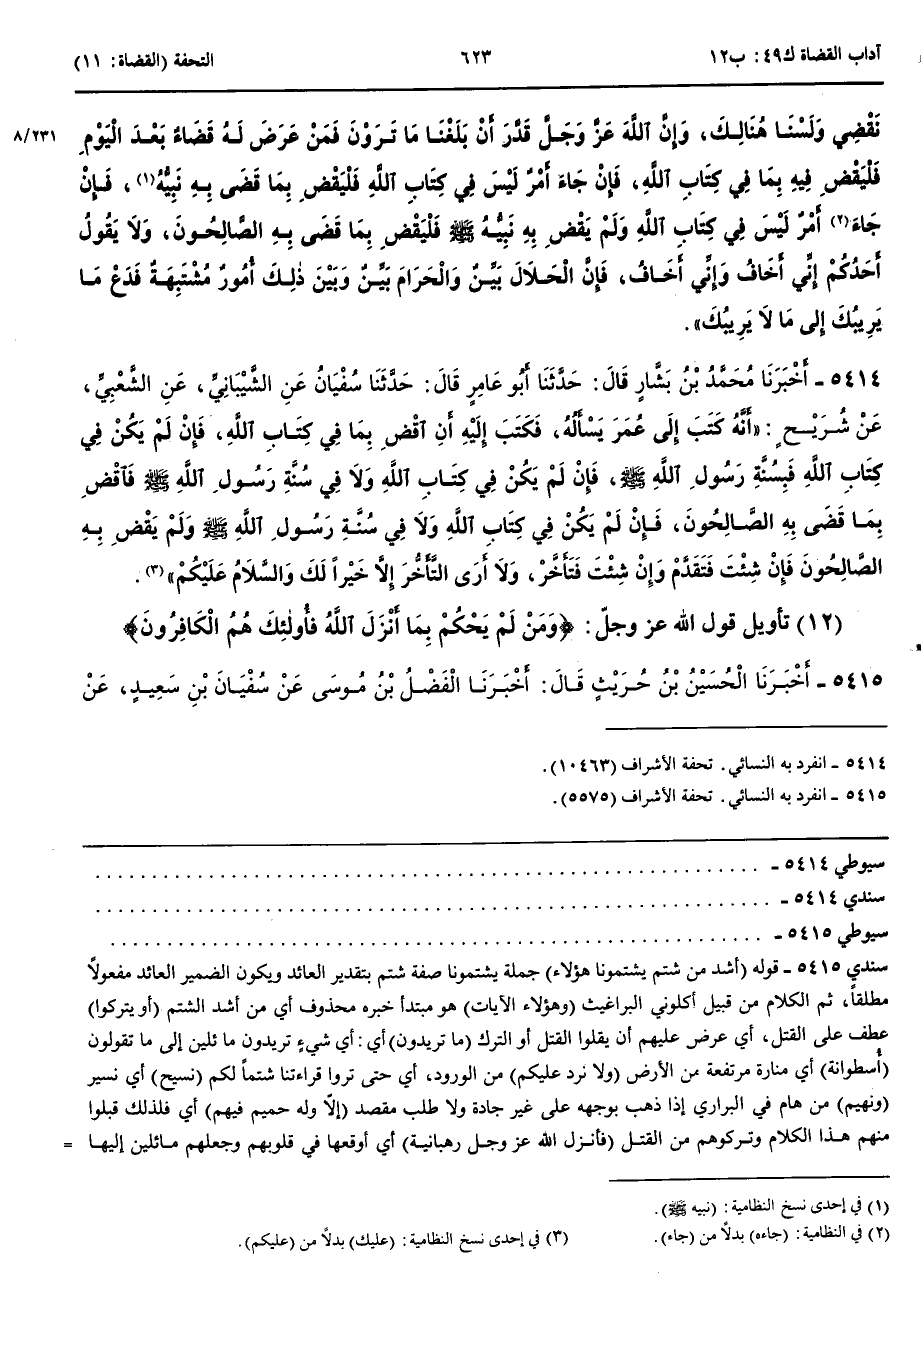 آداب القضاة ك٤٩: ب١٢
٦٢٣
التحفة (القضاة: ١١)
نَقْضِي وَلَسْنَا هُنَالِكَ، وَإِنَّ ٱللَّهَ عَزَّ وَجَلَّ قَدَّرَ أَنْ بَلَغْنَا مَا تَرَوْنَ فَمَنْ عَرَضَ لَهُ قَضَاءٌ بَعْدَ الْيَوْمِ
٨/٢٣١
فَلْيَقْضِ فِيهِ بِمَا فِي كِتَابِ ٱللَّهِ، فَإِنْ جَاءَ أَمْرٌ لَيْسَ فِي كِتَابِ ٱللَّهِ فَلْيَقْضِ بِمَا قَضَى بِهِ نَبِيُّهُ(١)، فَإِنْ
جَاءَ(٢) أَمْرٌ لَيْسَ فِي كِتَابِ ٱللَّهِ وَلَمْ يَقْضِ بِهِ نَبِيُّهُ ﷺ فَلْيَقْضِ بِمَا قَضَى بِهِ الصَّالِحُونَ، وَلَا يَقُولُ
أَحَدُكُمْ إِنِّي أَخَافُ وَإِنِّي أَخَافُ، فَإِنَّ الْحَلَالَ بَيِّنٌ وَالْحَرَامَ بَيِّنٌ وَبَيْنَ ذٰلِكَ أُمُورٌ مُشْتَبِهَةٌ فَدَعْ مَا
يَرِيبُكَ إِلى مَا لاَ يَرِيبُكَ».
٥٤١٤ ـ أَخْبَرَنَا مُحَمَّدُ بْنُ بَشَّارٍ قَالَ: حَدَّثَنَا أَبُو عَامِرٍ قَالَ: حَدَّثَنَا سُفْيَانُ عَنِ الشَّيْبَانِيِّ، عَنِ الشَّعْبِيِّ،
عَنْ شُرَيْحٍ: «أَنَّهُ كَتَبَ إِلَى عُمَرَ يَسْأَلُهُ، فَكَتَبَ إِلَيْهِ أَنِ اقْضِ بِمَا فِي كِتَابِ ٱللَّهِ، فَإِنْ لَمْ يَكُنْ فِي
كِتَابِ ٱللَّهِ فَبِسُنَّةِ رَسُولِ ٱللَّهِ ﷺ، فَإِنْ لَمْ يَكُنْ فِي كِتَابِ ٱللَّهِ وَلَا فِي سُنَّةِ رَسُولِ ٱللَّهِ ﷺ فَٱقْضِ
بِمَا قَضَى بِهِ الصَّالِحُونَ، فَإِنْ لَمْ يَكُنْ فِي كِتَابِ ٱللَّهِ وَلَا فِي سُنَّةِ رَسُولِ ٱللَّهِ ﷺ وَلَمْ يَقْضِ بِهِ
الصَّالِحُونَ فَإِنْ شِئْتَ فَتَقَدَّمْ وَإِنْ شِئْتَ فَتَأَخَّرْ، وَلَا أَرَى التَّأَخُّرَ إِلَّا خَيْراً لَكَ وَالسَّلَامُ عَلَيْكُمْ»(٣).
(١٢) تأويل قول الله عز وجلّ: ﴿وَمَنْ لَمْ يَحْكُمْ بِمَا أَنْزَلَ ٱللَّهُ فَأُولٰئِكَ هُمُ الْكَافِرُونَ﴾
٥٤١٥ ـ أَخْبَرَنَا الْحُسَيْنُ بْنُ حُرَيْثٍ قَالَ: أَخْبَرَنَا الْفَضْلُ بْنُ مُوسَى عَنْ سُفْيَانَ بْنِ سَعِيدٍ، عَنْ
٥٤١٤ ـ انفرد به النسائي. تحفة الأشراف (١٠٤٦٣).
٥٤١٥ ـ انفرد به النسائي. تحفة الأشراف (٥٥٧٥).
سيوطي ٥٤١٤ ـ . . . . . . . . . . . . . . . . . . . .
سندي ٥٤١٤ ـ . . . . . . . . . . . . . . . . . . . .
سيوطي ٥٤١٥ ـ . . . . . . . . . . . . . . . . . . . .
سندي ٥٤١٥ ـ قوله (أشد من شتم يشتمونا هؤلاء) جملة يشتمونا صفة شتم بتقدير العائد ويكون الضمير العائد مفعولاً
مطلقاً، ثم الكلام من قبيل أكلوني البراغيث (وهؤلاء الآيات) هو مبتدأ خبره محذوف أي من أشد الشتم (أو يتركوا)
عطف على القتل، أي عرض عليهم أن يقلوا القتل أو الترك (ما تريدون) أي: أي شيءٍ تريدون مائلين إلى ما تقولون
(أُسطوانة) أي منارة مرتفعة من الأرض (ولا نرد عليكم) من الورود، أي حتى تروا قراءتنا شتماً لكم (نسيح) أي نسير
(ونهيم) من هام في البراري إذا ذهب بوجهه على غير جادة ولا طلب مقصد (إلّا وله حميم فيهم) أي فلذلك قبلوا
منهم هذا الكلام وتركوهم من القتل (فأنزل الله عز وجل رهبانية) أي أوقعها في قلوبهم وجعلهم مائلين إليها =
(١) في إحدى نسخ النظامية: (نبيه ﷺ).
(٢) في النظامية: (جاءه) بدلًا من (جاء).
(٣) في إحدى نسخ النظامية: (عليك) بدلًا من (عليكم).